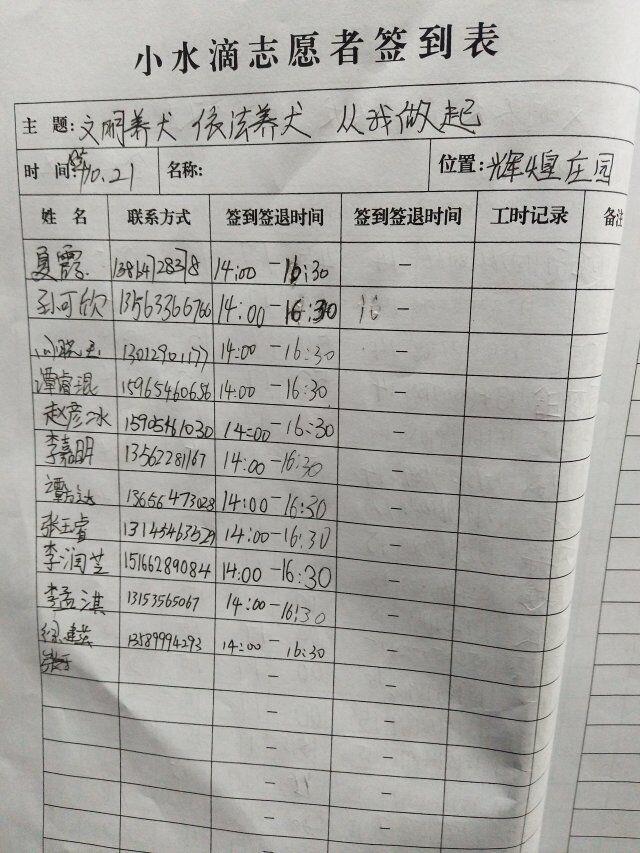 小水滴志愿者签到表
主 题: 文明养犬 依法养犬 从我做起
时 间: 10.21 名称: 位置: 辉煌庄园
姓 名 联系方式 签到签退时间 签到签退时间 工时记录 备注
夏霞 14:00 - 16:30 -
孙可欣 13563366766 14:00 - 16:30 16
13012901177 14:00 - 16:30 -
谭睿混 15965460656 14:00 - 16:30 -
赵彦冰 15905461030 14:00 - 16:30 -
李嘉明 13562281167 14:00 - 16:30 -
13656473028 14:00 - 16:30 -
张玉睿 13145463529 14:00 - 16:30 -
李润芝 15166289084 14:00 - 16:30 -
李孟淇 13153565067 14:00 - 16:30 -
徐建英 13589994293 14:00 - 16:30 -
- -
- -
- -
- -
- -
- -